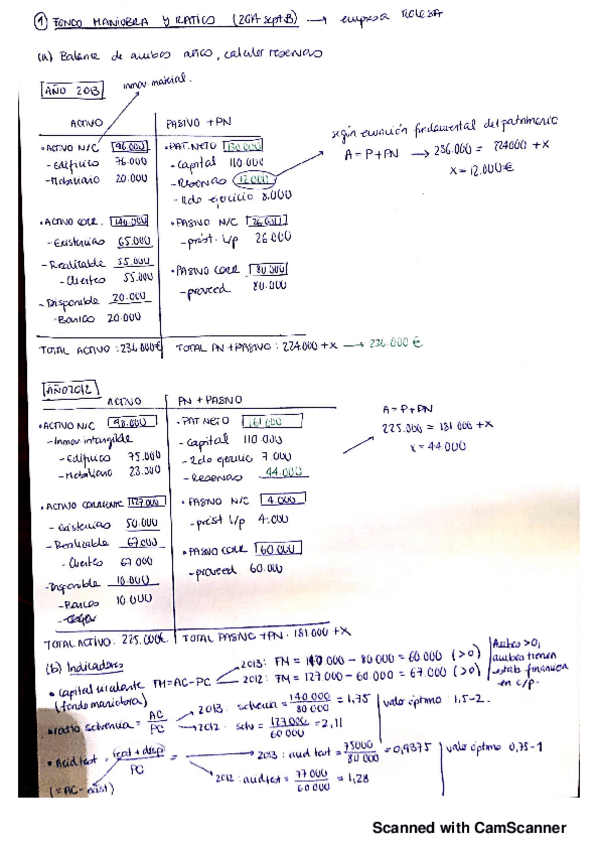 ① FONDO MANIOBRA Y RATIOS (2014 sept.B) → empresa ROLESA
(a) Balance de ambos años, calcular reservas
AÑO 2013
inmov. material.
ACTIVO PASIVO + PN
• ACTIVO N/C 96.000
- Edificio 76.000
- Mobiliario 20.000
• ACTIVO CORR. 140.000
- Existencias 65.000
- Realizable 55.000
- Clientes 55.000
- Disponible 20.000
- Bancos 20.000
TOTAL ACTIVO: 236.000€
• PAT. NETO 130.000
- Capital 110.000
- Reservas 12.000
- Rdo ejercicio 8.000
• PASIVO N/C 26.000
- prést. L/p 26.000
• PASIVO CORR 80.000
- proveed 80.000
TOTAL PN + PASIVO: 224.000 + X → 236.000 €
según ecuación fundamental del patrimonio
A = P + PN → 236.000 = 224000 + X
X = 12.000€
AÑO 2012
ACTIVO PN + PASIVO
• ACTIVO N/C 98.000
- Inmov intangible
- Edificio 75.000
- Mobiliario 23.000
• ACTIVO CORRIENTE 127.000
- Existencias 50.000
- Realizable 67.000
- Clientes 67 000
- Disponible 10.000
- Bancos 10 000
TOTAL ACTIVO: 225.000€
• PAT NETO 161.000
- Capital 110 000
- Rdo ejercic 7.000
- Reservas 44.000
• PASIVO N/C 4.000
- prést L/p 4.000
• PASIVO CORR 60.000
- proveed 60.000
TOTAL PASIVO + PN: 181.000 + X
A = P + PN
225.000 = 181 000 + X
X = 44 000
(b) Indicadores
• capital circulante FM = AC - PC
(fondo maniobra)
2013: FM = 140 000 - 80 000 = 60 000 (>0)
2012: FM = 127.000 - 60.000 = 67.000 (>0)
Ambos >0,
ambos tienen
estab. financiera
en c/p.
• radio solvencia = AC / PC
2013: solvencia = 140 000 / 80 000 = 1,75
2012: solv = 127.000 / 60 000 = 2,11
valor óptimo 1,5-2.
• Acid test = real + disp / PC =
(= AC - exist)
2013: acid test = 75000 / 80 000 = 0,9375
2012: acid test = 77 000 / 60 000 = 1,28
valor óptimo 0,75-1
Scanned with CamScanner